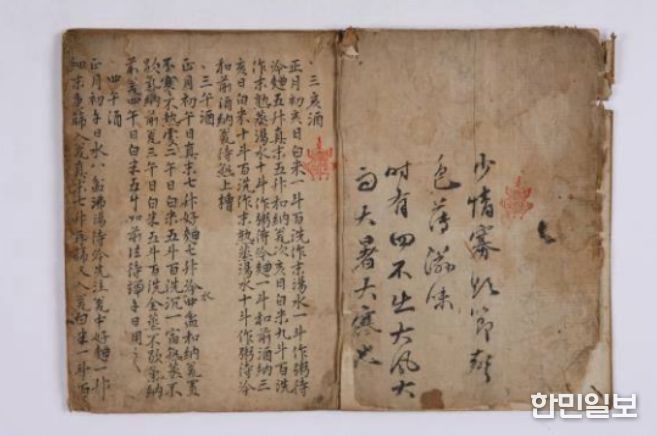 少情寡欲節聲
色薄滋味
時有四不出大風大
雨大暑大寒也
三亥酒
正月初亥日白米一斗百洗作末湯水一斗作粥待
冷麯五升真末五升和納瓮次亥日白米九斗百洗
作末熟蒸湯水十斗作粥待冷麯一斗和前酒納三
亥日白米十斗百洗作末熟蒸湯水十斗作粥待冷
和前酒納瓮待熟上槽
三午酒
正月初午日真末七升好麯七升冷水四盆和納瓮置
不寒不熱處二午日白米五斗百洗沉一宿熟蒸不
歇氣納前瓮三午日白米五斗百洗全蒸不歇氣納
前瓮四午日白米五斗如前法待端午日用之
四午酒
正月初午日水八盆沸湯待冷先注瓮中好麯一升
細末重篩入瓮真末七升再篩又入瓮白米一斗百
한민일보